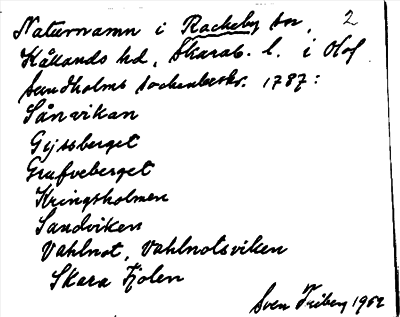 Naturnamn i Rackeby sn, 2
Kållands hd, Skarab. l. i Olof
Sundholms sockenbeskr. 1787:
Sånvikan
Gijssberget
Grafveberget
Kringsholmen
Sandviken
Vahlnot, Vahlnotsviken
Skara Kjolen
Sven Friberg 1962